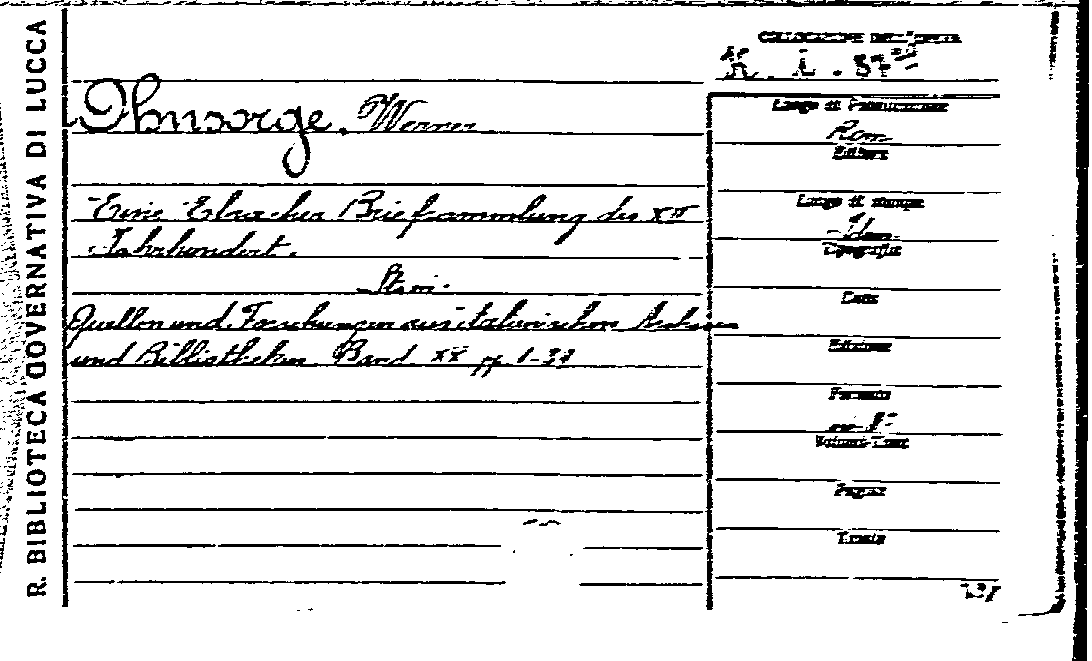 R. BIBLIOTECA GOVERNATIVA DI LUCCA
COLLOCAZIONE DELL'OPERA
K. I. 37
Ohnsorge, Werner
Eine Ebracher Briefsammlung des XII
Jahrhundert.
Quellen und Forschungen aus italienischen Archiven
und Bibliotheken Band XX pp. 1-39
Luogo di Pubblicazione
Rom
Editore
Luogo di stampa
Idem
Tipografia
Data
Edizione
Formato
in-8º
Volumi-Tomi
Pagine